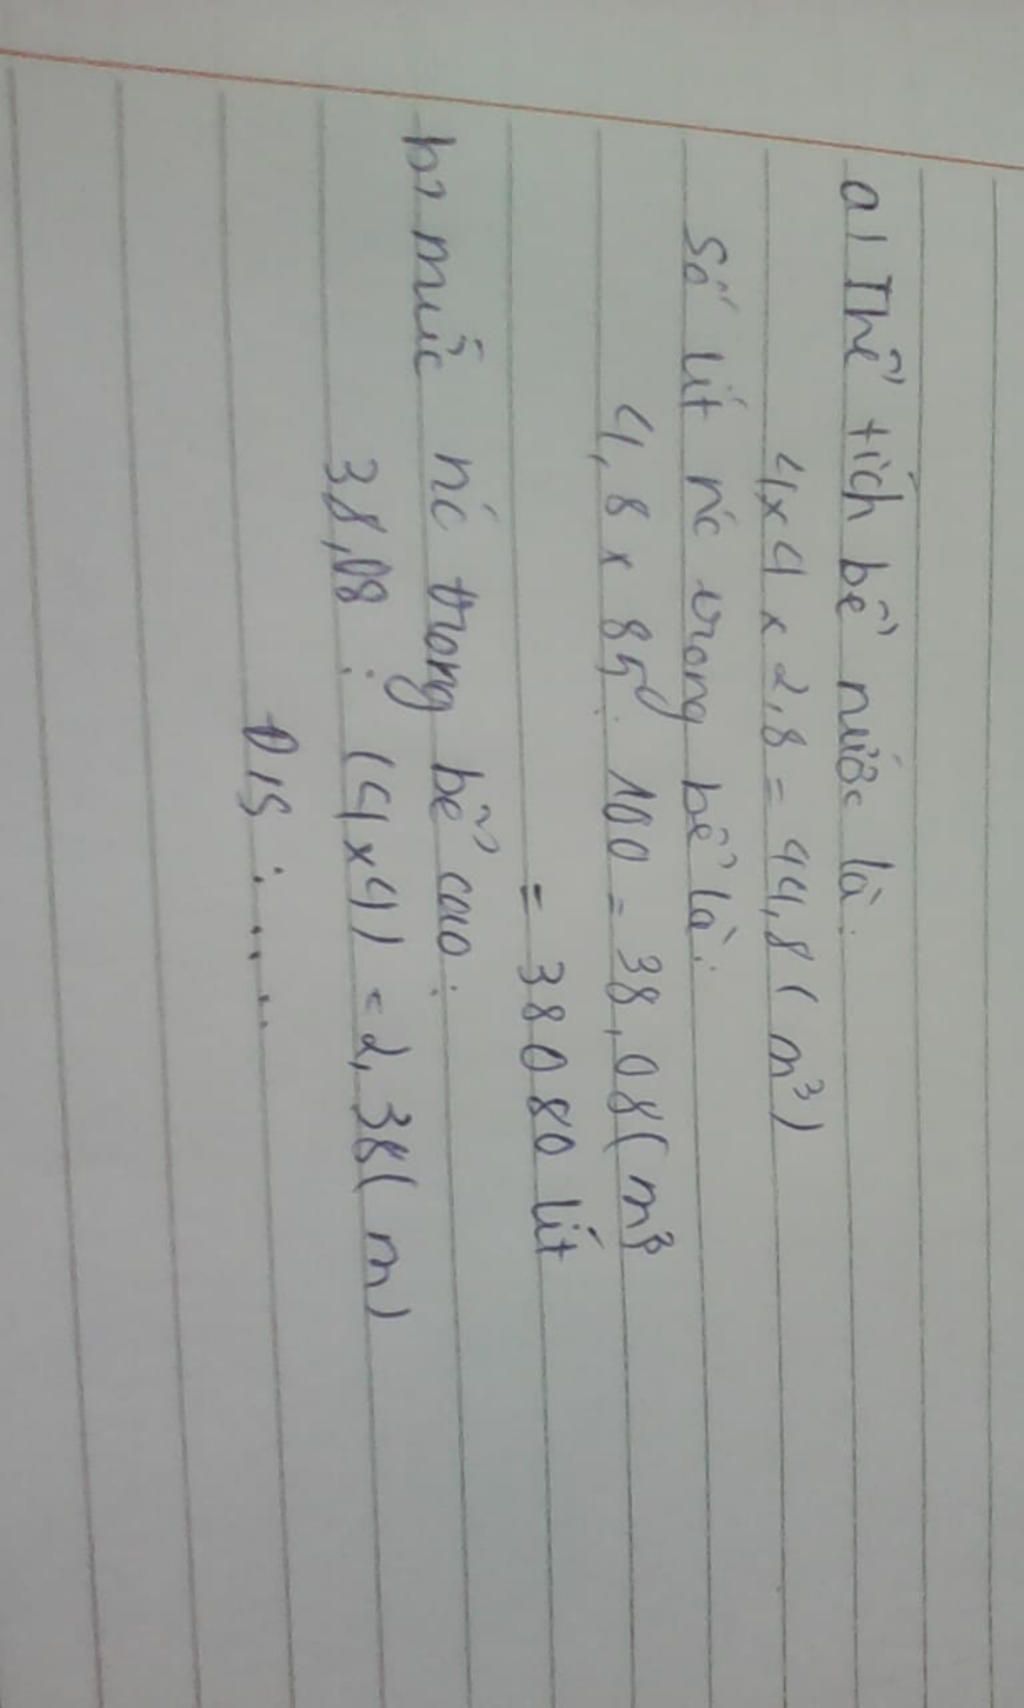 a) Thể tích bể nước là:
4 x 4 x 2,8 = 44,8 (m³)
Số lít nc trong bể là:
4,8 x 85 : 100 = 38,08 (m³)
= 38080 lít
b) mức nc trong bể cao:
38,08 : (4 x 4) = 2,38 (m)
Đ/S : ....